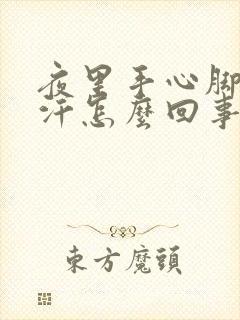 夜里手心脚
汗怎麼回事
東方魔頭